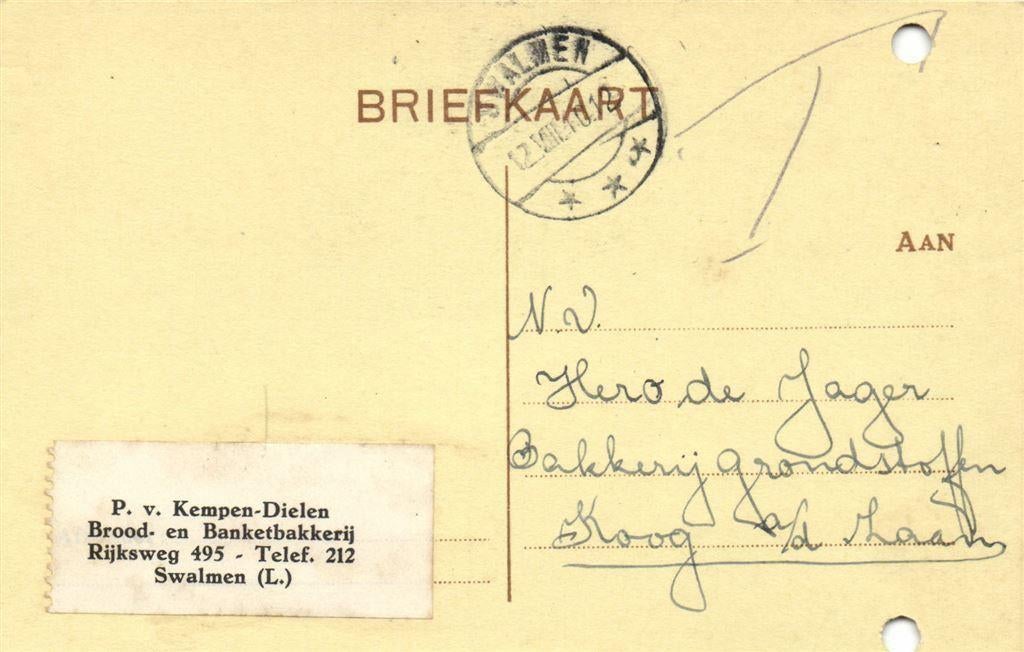 BRIEFKAART
SWALMEN
AAN
N.V.
Hero de Jager
Bakkerij grondstoffen
Koog a/d Zaan
P. v. Kempen-Dielen
Brood- en Banketbakkerij
Rijksweg 495 - Telef. 212
Swalmen (L.)